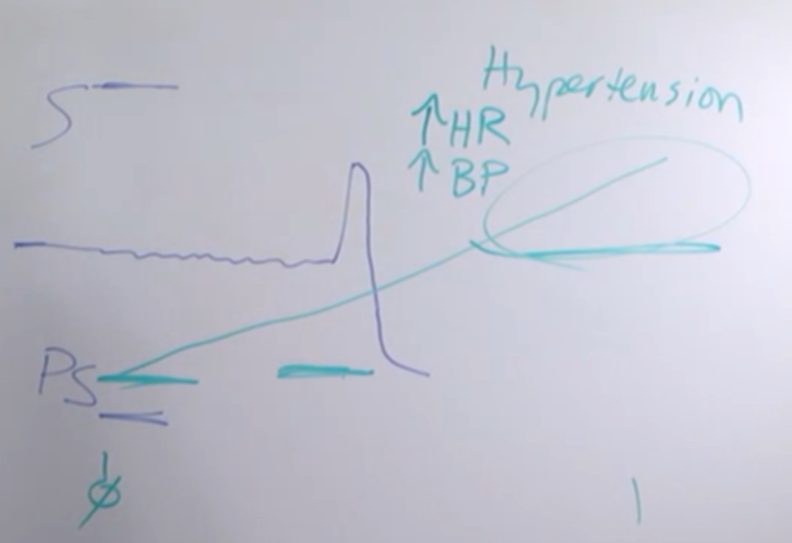 S
Hypertension
↑HR
↑BP
PS